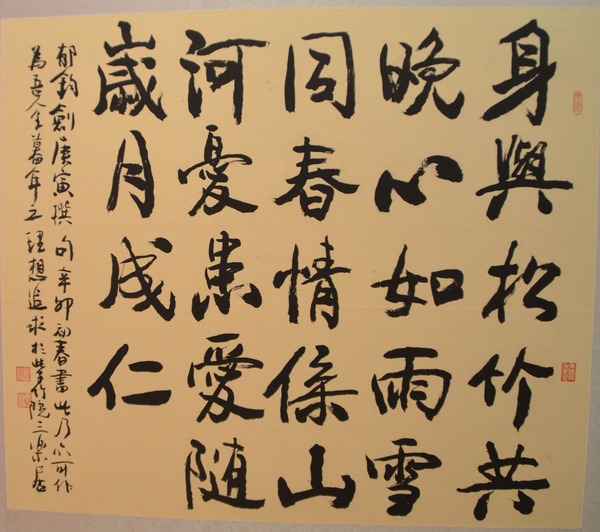 身與松竹共
晚心如雨雪
同春情係山
河憂患愛隨
歲月成仁
郁鈞劍庚寅撰句辛卯初春書此乃亦可作
為吾人生暮年之理想追求於紫竹院三樂居